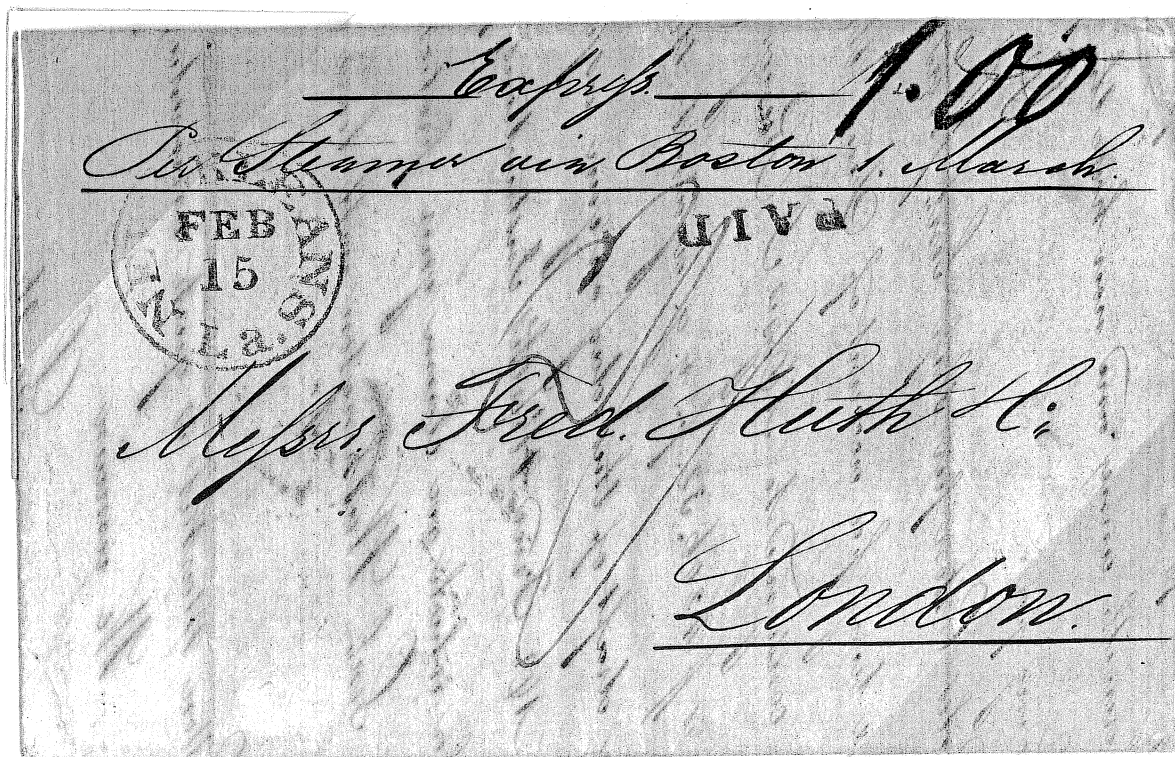 Express. 1.00
Per Steamer via Boston 1. March.
PAID
N. ORLEANS La.
FEB
15
Messrs. Fred. Huth &
London.